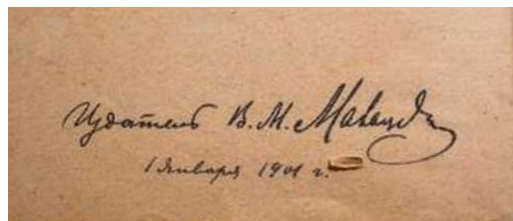 Издатель В. М.
1 Января 1901 г.